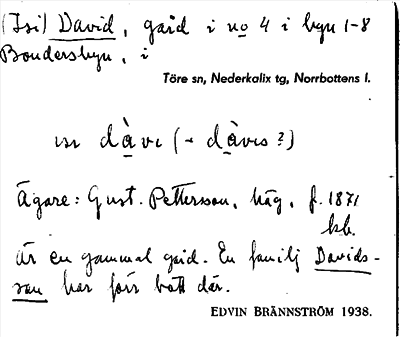 (Isi) David, gård i no 4 i byn 1-8
Bondersbyn, i
Töre sn, Nederkalix tg, Norrbottens l.
isi dàvi (- dàvis?)
Ägare: Gust. Pettersson, häg, f. 1871
kb.
Är en gammal gård. En familj Davids-
son har förr bott där.
EDVIN BRÄNNSTRÖM 1938.